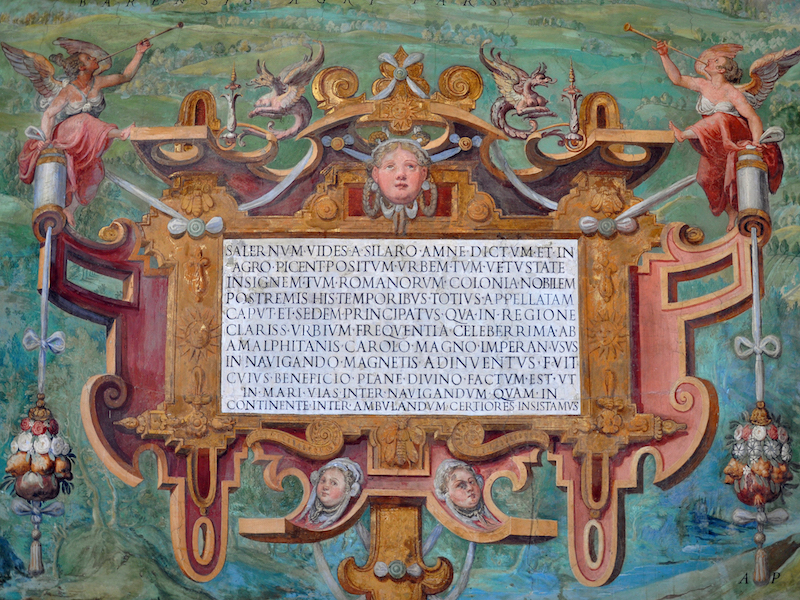 BARENSIS AGRI PARS
SALERNVM·VIDES·A·SILARO·AMNE·DICTVM·ET·IN
AGRO·PICENT·POSITVM·VRBEM·TVM·VETVSTATE
INSIGNEM·TVM·ROMANORVM·COLONIA·NOBILEM
POSTREMIS·HIS·TEMPORIBVS·TOTIVS·APPELLATAM
CAPVT·EI·SEDEM·PRINCIPATVS·QVA·IN·REGIONE
CLARISS·VRBIVM·FREQVENTIA·CELEBERRIMA·AB
AMALPHITANIS·CAROLO·MAGNO·IMPERAN·VSVS
IN·NAVIGANDO·MAGNETIS·ADINVENTVS·FVIT
CVIVS·BENEFICIO·PLANE·DIVINO·FACTVM·EST·VT
IN·MARI·VIAS·INTER·NAVIGANDVM·QVAM·IN
CONTINENTE·INTER·AMBVLANDVM·CERTIORES·INSISTAMVS
A P